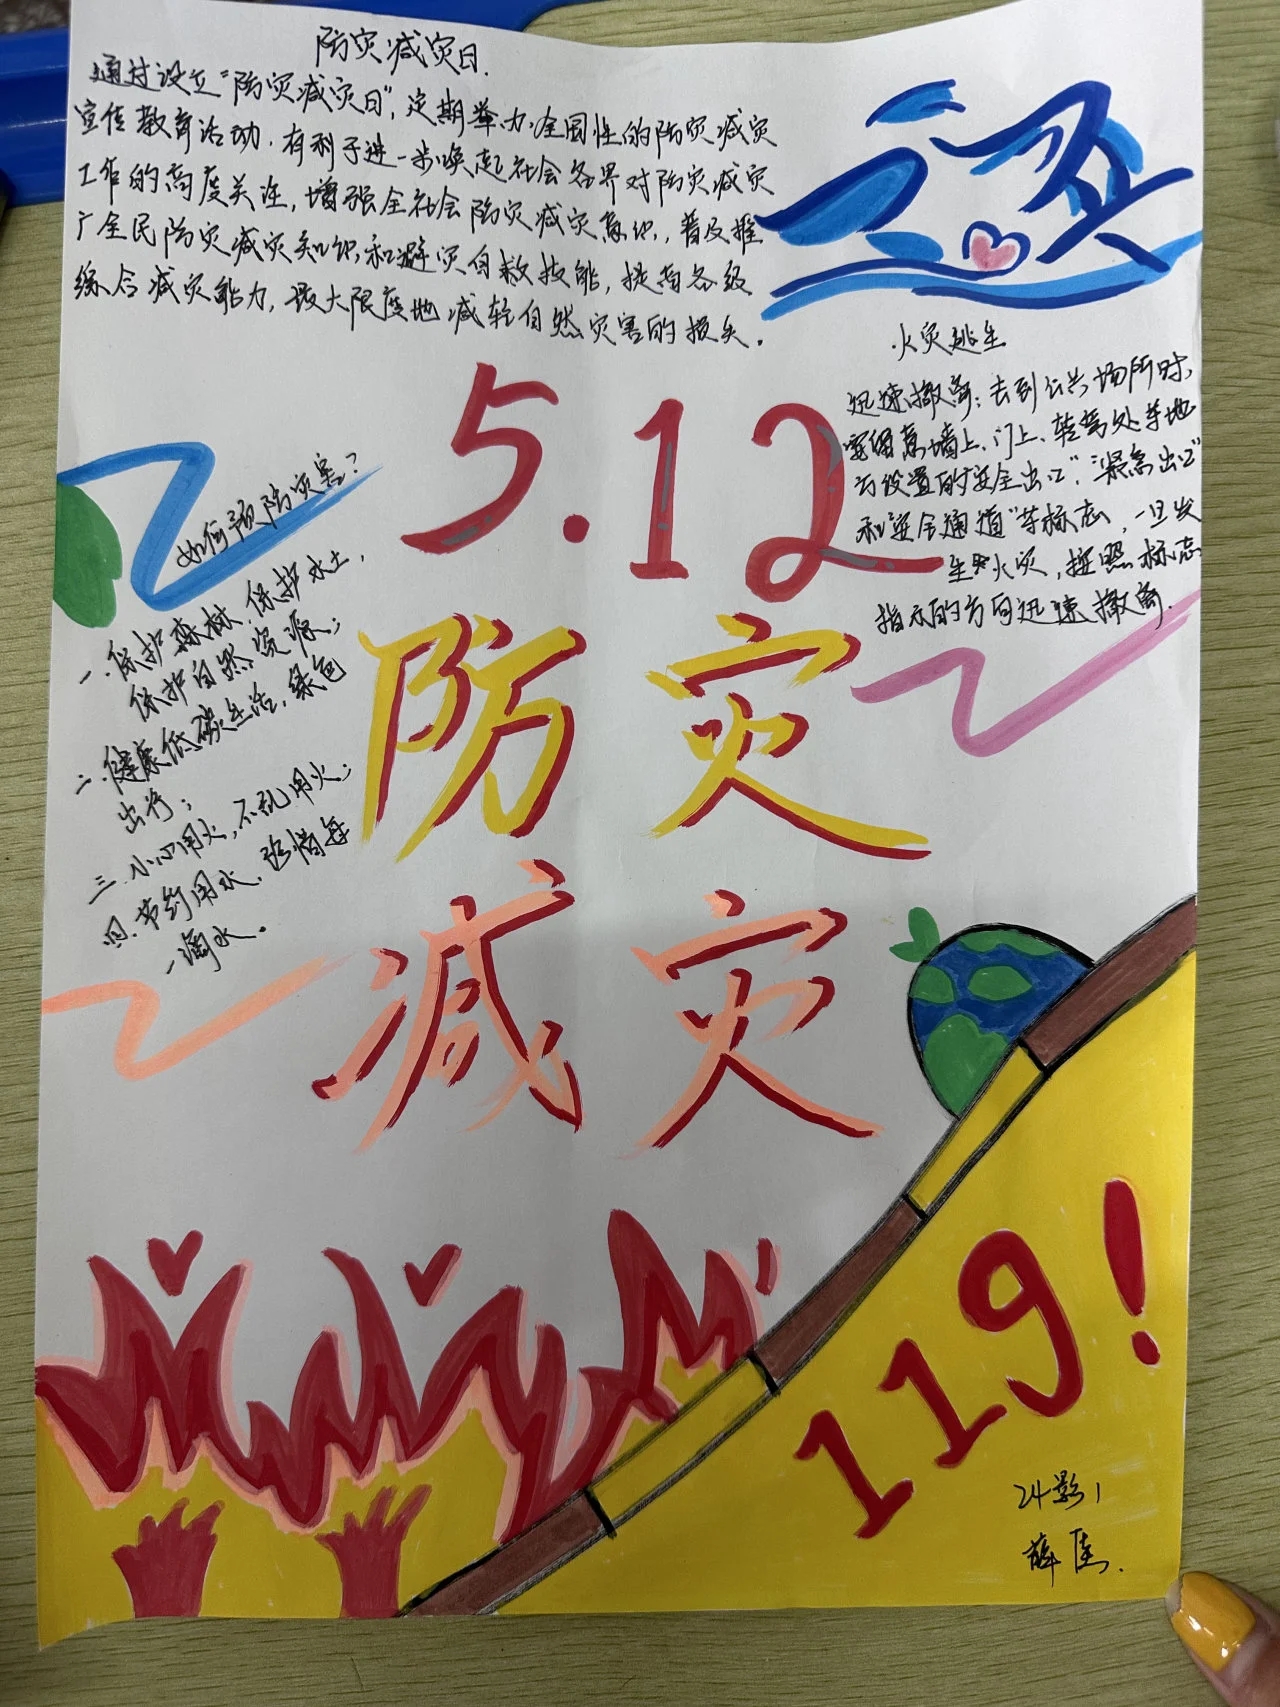 防灾减灾日.
通过设立"防灾减灾日",定期举办全国性的防灾减灾
宣传教育活动.有利于进一步唤起社会各界对防灾减灾
工作的高度关注,增强全社会防灾减灾意识,普及推
广全民防灾减灾知识和避灾自救技能,提高各级
综合减灾能力,最大限度地减轻自然灾害的损失.
火灾逃生
迅速撤离:去到公共场所时,
要留意墙上、门上、转弯处等地
方设置的"安全出口","紧急出口"
和安全通道"等标志,一旦发
生火灾,按照标志
指示的方向迅速撤离.
5.12
防灾
减灾
如何预防灾害?
一.保护森林.保护水土,
保护自然资源;
二.健康低碳生活,绿色
出行;
三.小心用火,不乱用火;
四.节约用水.珍惜每
一滴水.
119!
24影1
薛佳.